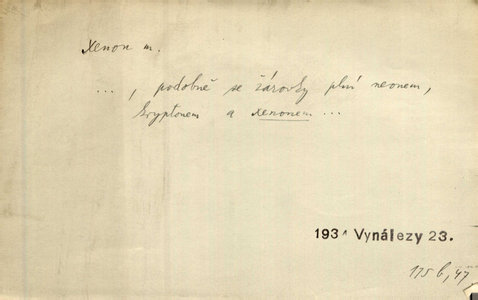 Xenon m.
..., podobně se žárovky plní neonem,
kryptonem a xenonem ...
1931 Vynálezy 23.
115 b, 47